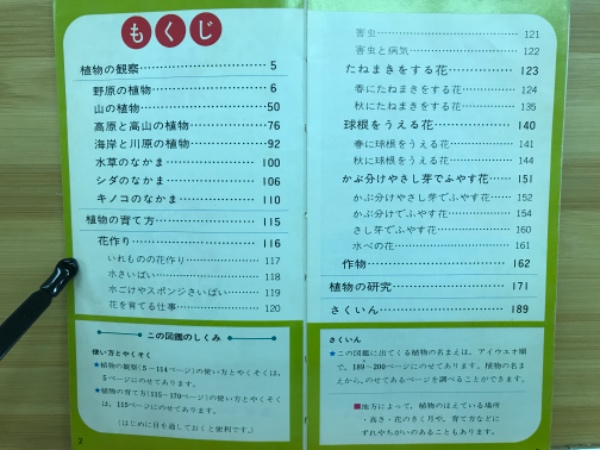 もくじ
植物の観察……………………5
野原の植物……………………6
山の植物……………………50
高原と高山の植物……………76
海岸と川原の植物……………92
水草のなかま………………100
シダのなかま………………106
キノコのなかま……………110
植物の育て方………………115
花作り………………………116
いれものの花作り……………117
水さいばい……………………118
水ごけやスポンジさいばい……119
花を育てる仕事………………120
この図鑑のしくみ
使い方とやくそく
★植物の観察(5〜114ページ)の使い方とやくそくは、
5ページにのせてあります。
★植物の育て方(115〜170ページ)の使い方とやくそく
は、115ページにのせてあります。
(はじめに目を通しておくと便利です。)
2
害虫……………………………121
害虫と病気……………………122
たねまきをする花……………123
春にたねまきをする花………124
秋にたねまきをする花………135
球根をうえる花………………140
春に球根をうえる花…………141
秋に球根をうえる花…………144
かぶ分けやさし芽でふやす花……151
かぶ分けやさし芽でふやす花……152
かぶ分けでふやす花…………154
さし芽でふやす花……………160
水べの花………………………161
作物……………………………162
植物の研究……………………171
さくいん………………………189
さくいん
★この図鑑に出てくる植物の名まえは、アイウエオ順
で、189〜200ページにのせてあります。植物の名ま
えから、のせてあるページを調べることができます。
■地方によって、植物のはえている場所
・高さ・花のさく月や、育て方などに
ずれやちがいのあることもあります。